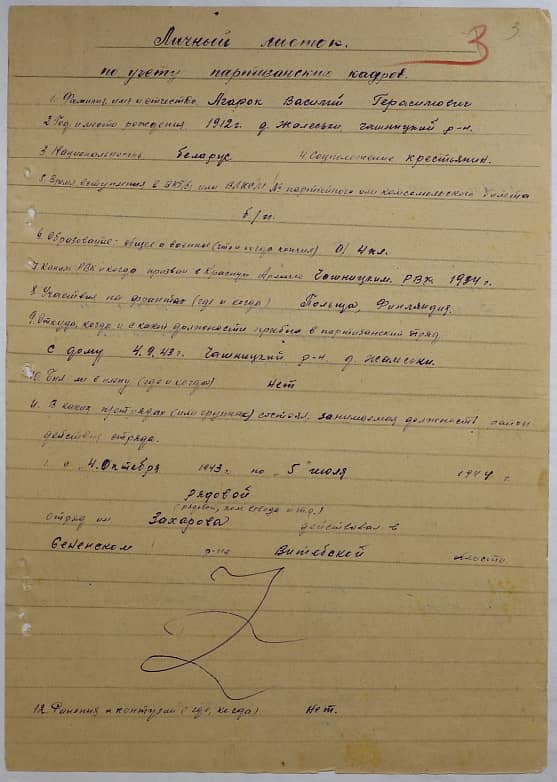 3
3
Личный листок.
по учету партизанских кадров.
1. Фамилия, имя и отчество Агарок Василий Герасимович
2. Год и место рождения 1912 г. д. Жалеськи, Чашницкий р-н.
3. Национальность беларус 4. Соцположение крестьянин.
5. Время вступления в ВКП/б/ или ВЛКСМ № партийного или комсомольского билета
б/п.
6. Образование: общее и военное (что и когда кончил) О/ 4 кл.
7. Каким РВК и когда призван в Красную Армию Чашницким РВК 1934 г.
8. Участвия на фронтах (где и когда) Польща, Финляндия.
9. Откуда, когда и с какой должности прибыл в партизанский отряд
с дому 4.9.43 г. Чашницкий р-н. д.
10. Был ли в плену (где и когда) Нет
11. В каких простотрядах (или группах) состоял, занимаемая должность, район
действия отряда.
1. с "4 Октября 1943 г. по "5" июля 1944 г.
рядовой
(рядовой, ком. взвода и т.д.)
отряд им Захарова действовал в
Сененском р-не Витебской области.
12. Ранения и контузии (где, когда) Нет.